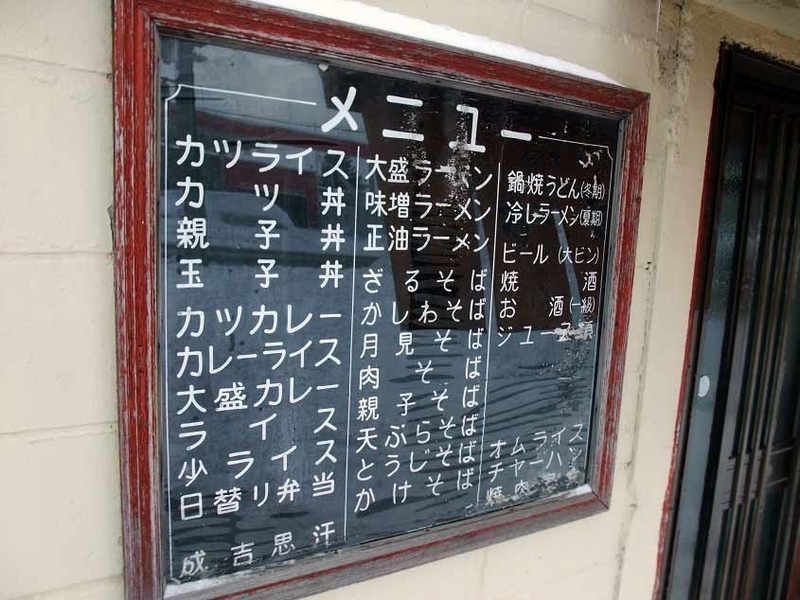 メニュー
カツライス
カツ丼
親子丼
玉子丼
カツカレー
カレーライス
大盛カレー
ライス
少ライス
日替り弁当
成吉思汗
大盛ラーメン
味増ラーメン
正油ラーメン
ざるそば
かしわそば
月見そば
肉そば
親子そば
天ぷらそば
とうじそば
かけそば
鍋焼うどん(冬期)
冷しラーメン(夏期)
ビール(大ビン)
焼酒
お酒(一級)
ジュース類
オムライス
チヤーハン
焼肉